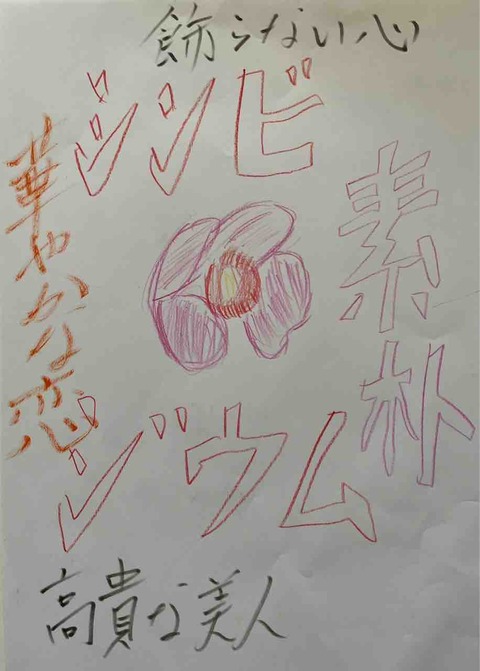 飾らない心
シンビ
ジウム
素朴
華やかな恋
高貴な美人